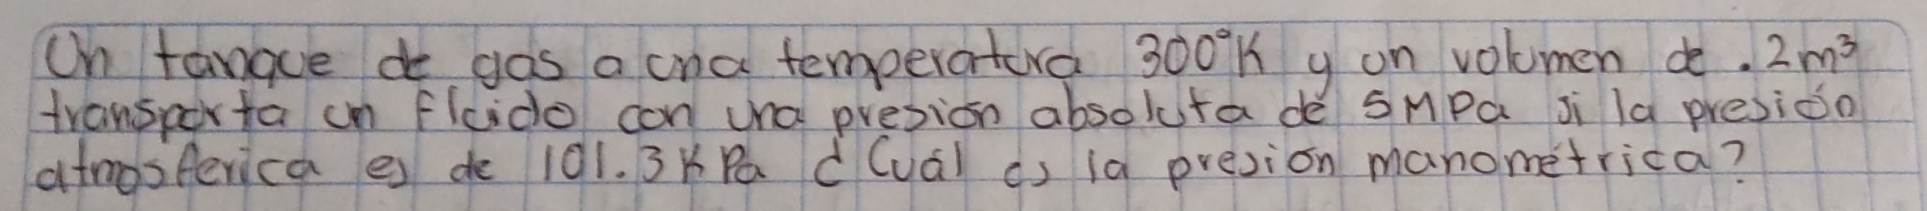 Un tanque de gas a una temperatura 300°K y un volumen de .2m³
transporta un fluido con una presión absoluta de 5MPa si la presión
atmosferica es de 101.3KPa ¿Cuál es la presión manométrica?